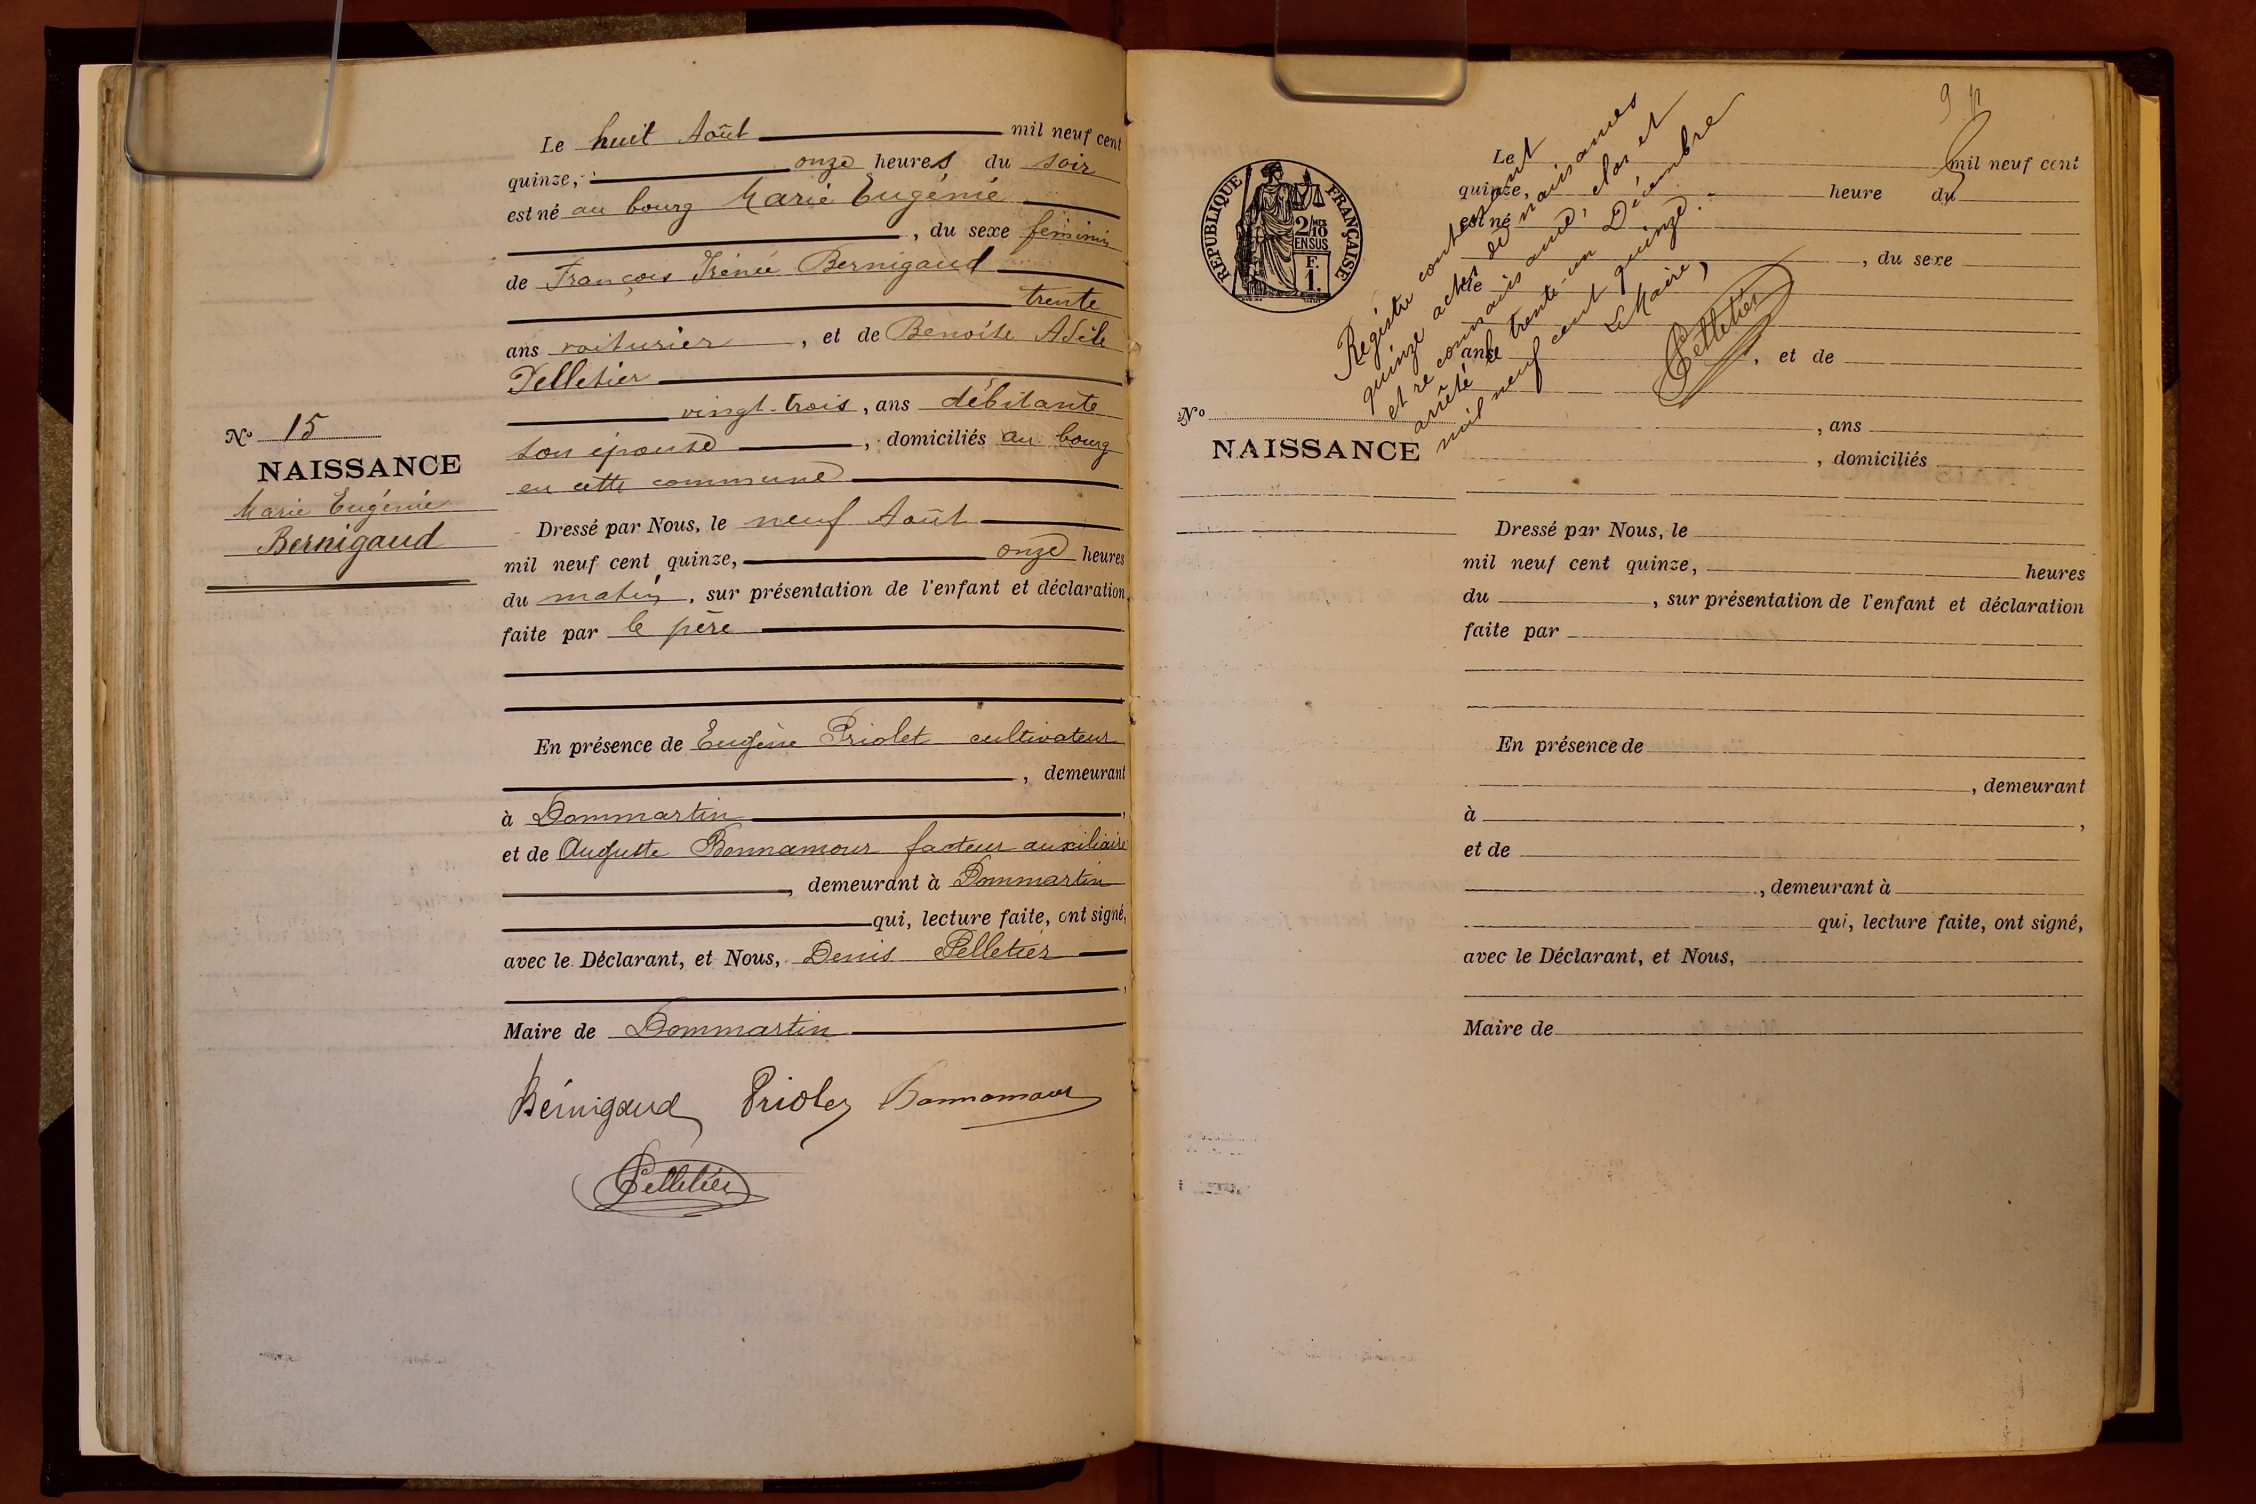 Le huit Août mil neuf cent
quinze, onze heures du soir
est né au bourg Marie Eugénie
, du sexe féminin
de François Irénée Bernigaud
trente
ans voiturier , et de Benoîte Adèle
Pelletier
vingt-trois , ans débitante
son épouse , domiciliés au bourg
en cette commune
Nº 15
NAISSANCE
Marie Eugénie
Bernigaud
Dressé par Nous, le neuf Août
mil neuf cent quinze, onze heures
du matin , sur présentation de l'enfant et déclaration
faite par le père
En présence de Eugène Priolet cultivateur
, demeurant
à Dommartin ,
et de Auguste Bonnamour facteur auxiliaire
, demeurant à Dommartin
qui, lecture faite, ont signé,
avec le Déclarant, et Nous, Denis Pelletier
,
Maire de Dommartin
Bernigaud Priolet Bonnamour
Pelletier
9
REPUBLIQUE FRANÇAISE
2/10MES
EN SUS
F.
1.
Registre contenant
quinze actes de naissances
et reconnaissance, clos et
arrêté le trente-un Décembre
mil neuf cent quinze.
Le Maire,
Pelletier
Le mil neuf cent
quinze, heure du
est né
, du sexe
de
ans , et de
, ans
, domiciliés
Nº
NAISSANCE
Dressé par Nous, le
mil neuf cent quinze, heures
du , sur présentation de l'enfant et déclaration
faite par
En présence de
, demeurant
à ,
et de
, demeurant à
qui, lecture faite, ont signé,
avec le Déclarant, et Nous,
Maire de